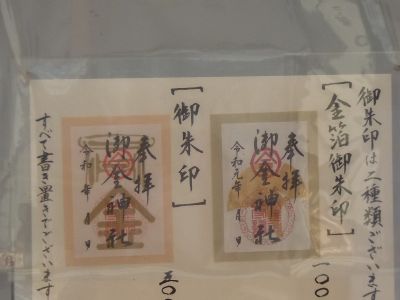 御朱印は二種類ございます
[金箔御朱印]
一〇〇
奉拝
御金神社
令和元年 月 日
[御朱印]
五〇
奉拝
御金神社
令和 年 月 日
すべて書き置きでございます